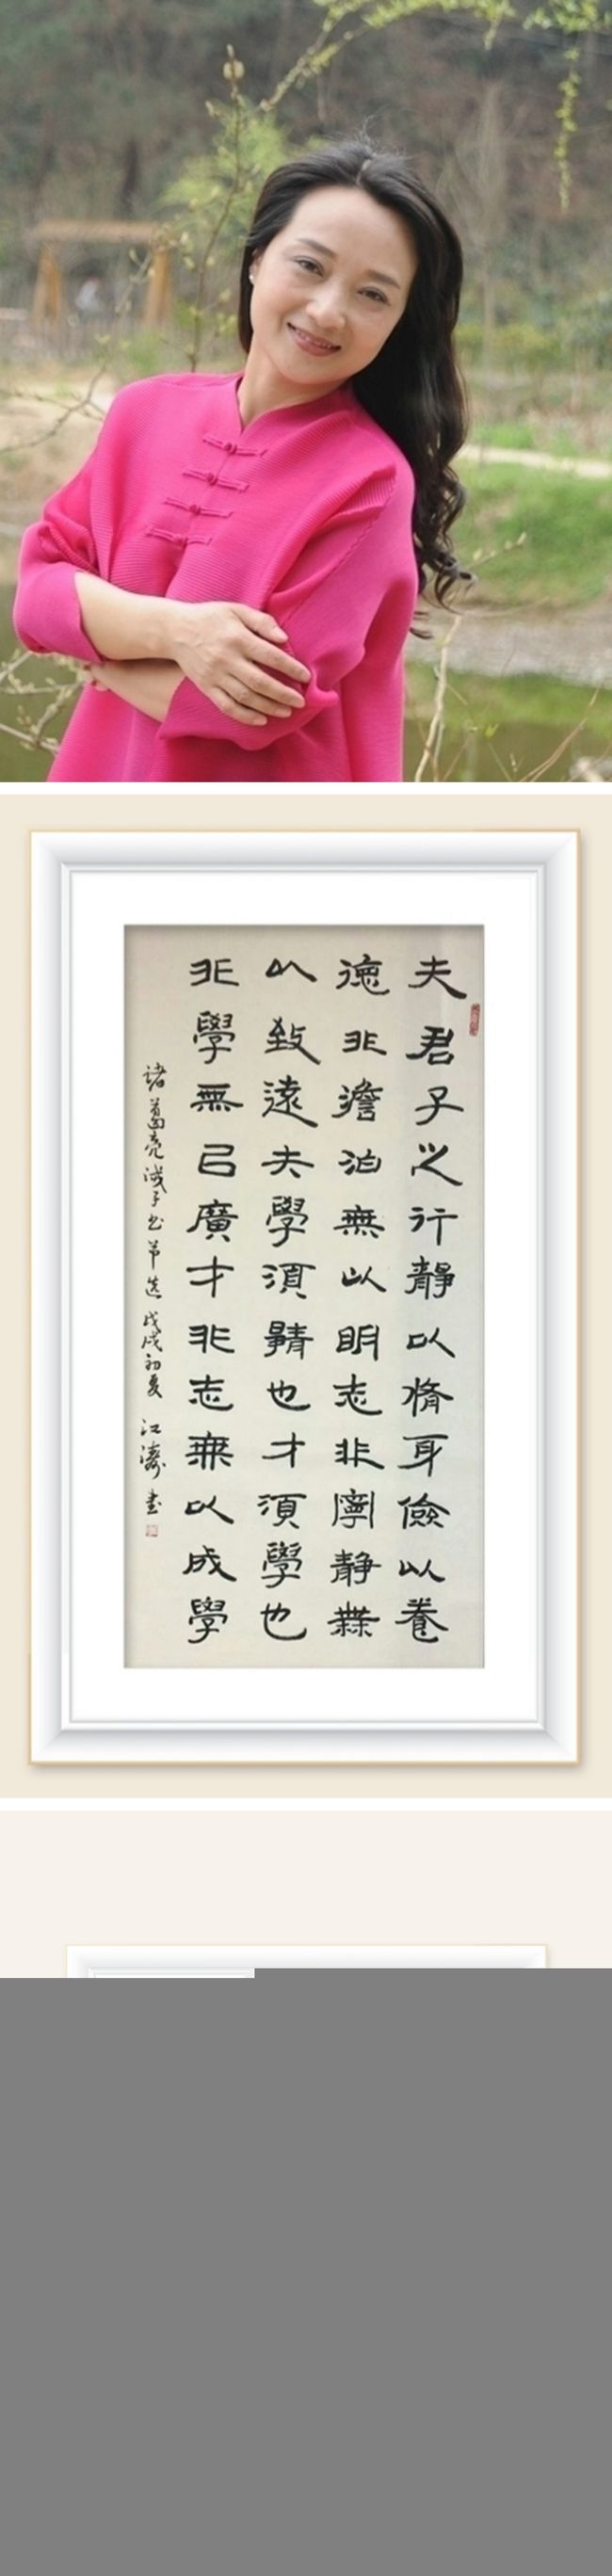 夫君子之行靜以脩身儉以養
德非澹泊無以明志非寧靜無
以致遠夫學須靜也才須學也
非學無㠯廣才非志無以成學
諸葛亮诫子书节选 戊戌初夏 江濤 書